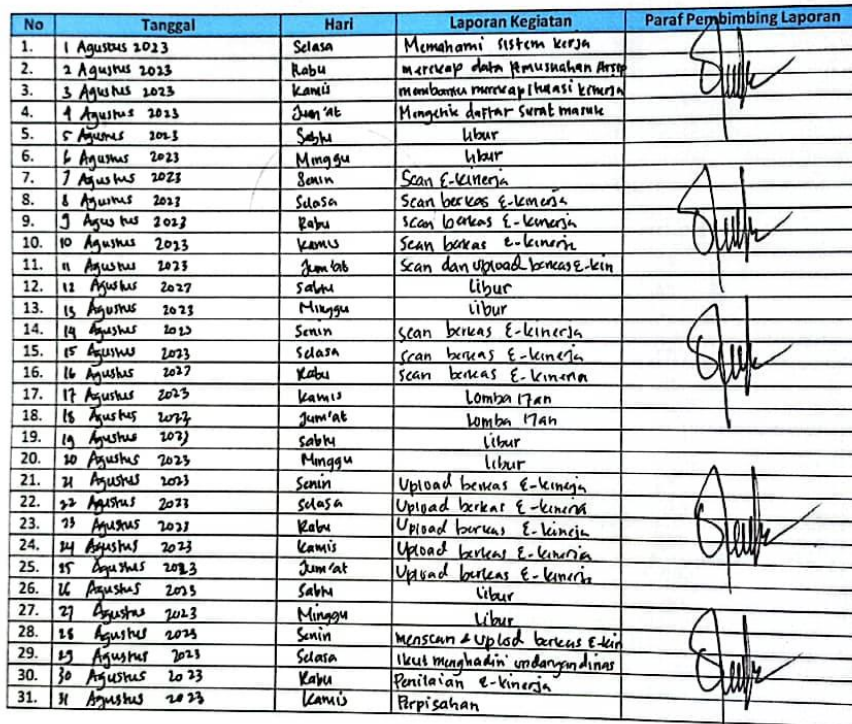 No Tanggal Hari Laporan Kegiatan Paraf Pembimbing Laporan
1. 1 Agustus 2023 Selasa Memahami sistem kerja
2. 2 Agustus 2023 Rabu merekap data Pemusnahan Arsip
3. 3 Agustus 2023 Kamis membantu merekap kinerja
4. 4 Agustus 2023 Jum'at Mengetik daftar surat masuk
5. 5 Agustus 2023 Sabtu libur
6. 6 Agustus 2023 Minggu libur
7. 7 Agustus 2023 Senin Scan E-kinerja
8. 8 Agustus 2023 Selasa Scan berkas E-kinerja
9. 9 Agustus 2023 Rabu scan berkas E-kinerja
10. 10 Agustus 2023 Kamis Scan berkas e-kinerja
11. 11 Agustus 2023 Jum'at Scan dan upload berkas E-kin
12. 12 Agustus 2023 Sabtu Libur
13. 13 Agustus 2023 Minggu Libur
14. 14 Agustus 2023 Senin scan berkas E-kinerja
15. 15 Agustus 2023 Selasa scan berkas E-kinerja
16. 16 Agustus 2023 Rabu scan berkas E-kinerja
17. 17 Agustus 2023 Kamis Lomba 17an
18. 18 Agustus 2023 Jum'at Lomba 17an
19. 19 Agustus 2023 Sabtu Libur
20. 20 Agustus 2023 Minggu Libur
21. 21 Agustus 2023 Senin Upload berkas E-kineja
22. 22 Agustus 2023 Selasa Upload berkas E-kinerja
23. 23 Agustus 2023 Rabu Upload berkas E-kineja
24. 24 Agustus 2023 Kamis Upload berkas E-kinerja
25. 25 Agustus 2023 Jum'at Upload berkas E-kinerja
26. 26 Agustus 2023 Sabtu Libur
27. 27 Agustus 2023 Minggu Libur
28. 28 Agustus 2023 Senin menscan & Uplod berkas E-kin
29. 29 Agustus 2023 Selasa Ikut menghadiri undangan dinas
30. 30 Agustus 2023 Rabu Penilaian e-kinerja
31. 31 Agustus 2023 Kamis Perpisahan